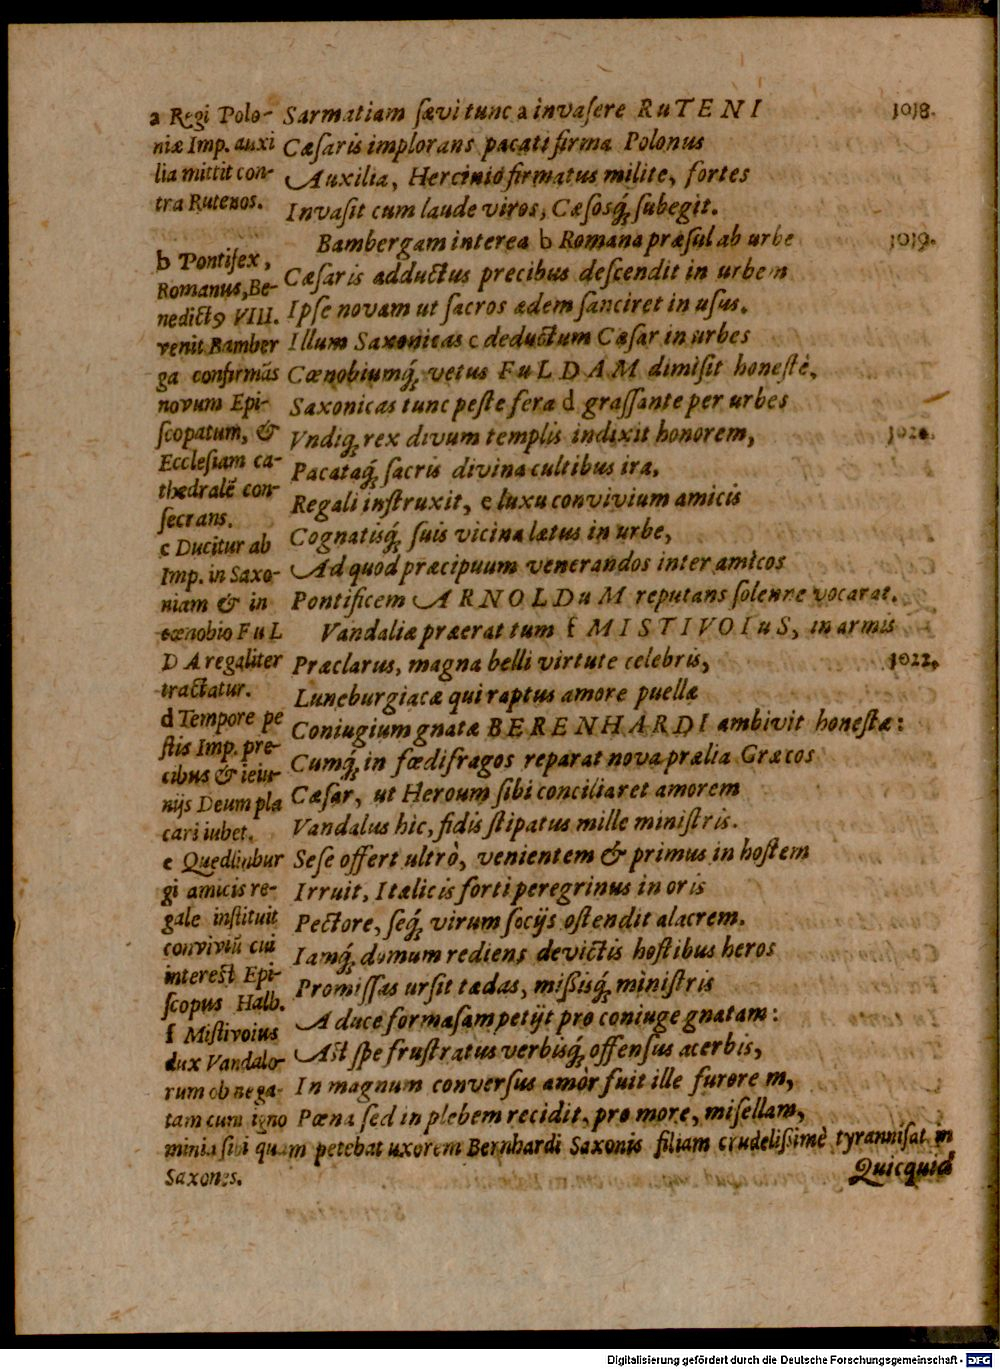 Sarmatiam ſævi tunc a invaſere RuTENI 1018.
Cæſaris implorans pacati firma Polonus
Auxilia, Hercinio firmatus milite, fortes
Invaſit cum laude viros, Cæſosq́; ſubegit.
Bambergam interea b Romana præſul ab urbe 1019.
Cæſaris adductus precibus deſcendit in urbem
Ipſe novam ut ſacros ædem ſanciret in uſus.
Illum Saxonicas c deductum Cæſar in urbes
Cœnobiumq́; vetus FuLDAM dimiſit honeſtè,
Saxonicas tunc peſte fera d graſſante per urbes
Vndiq; rex divum templis indixit honorem, 1020.
Pacataq́; ſacris divina cultibus ira,
Regali inſtruxit, e luxu convivium amicis
Cognatisq́; ſuis vicina lætus in urbe,
Ad quod præcipuum venerandos inter amicos
Pontificem ARNOLDuM reputans ſolenne vocarat.
Vandaliæ præerat tum f MISTIVOIuS, in armis
Præclarus, magna belli virtute celebris, 1022.
Luneburgiacæ qui raptus amore puellæ
Coniugium gnatæ BERENHARDI ambivit honeſtæ:
Cumq́; in fœdifragos reparat nova prælia Græcos
Cæſar, ut Heroum ſibi conciliaret amorem
Vandalus hic, fidis ſtipatus mille miniſtris.
Seſe offert ultrò, venientem & primus in hoſtem
Irruit, Italicis forti peregrinus in oris
Pectore, ſeq́; virum ſocijs oſtendit alacrem.
Iamq́; domum rediens devictis hoſtibus heros
Promiſſas urſit tædas, mißisq́; miniſtris
A duce formaſam petijt pro coniuge gnatam:
Aſt ſpe fruſtratus verbisq́; offenſus acerbis,
In magnum converſus amòr fuit ille furore m,
Pœna ſed in plebem recidit, pro more, miſellam,
Quicquid
a Regi Polo-
niæ Imp. auxi
lia mittit con-
tra Rutenos.
b Pontifex,
Romanus, Be-
nedictꝰ VIII.
venit Bamber
ga confirmãs
novum Epi-
ſcopatum, &
Eccleſiam ca-
thedralẽ con-
ſecrans.
c Ducitur ab
Imp. in Saxo-
niam & in
cœnobio FuL
DA regaliter
tractatur.
d Tempore pe
ſtis Imp. pre-
cibus & ieiu-
nijs Deum pla
cari iubet.
e Quedlinbur
gi amicis re-
gale inſtituit
conviviũ cui
intereſt Epi-
ſcopus Halb.
f Miſtivoius
dux Vandalo-
rum ob nega-
tam cum igno
minia ſibi quam petebat uxorem Bernhardi Saxonis filiam crudelißimè tyranniſat in
Saxones.
Digitalisierung gefördert durch die Deutsche Forschungsgemeinschaft - DFG